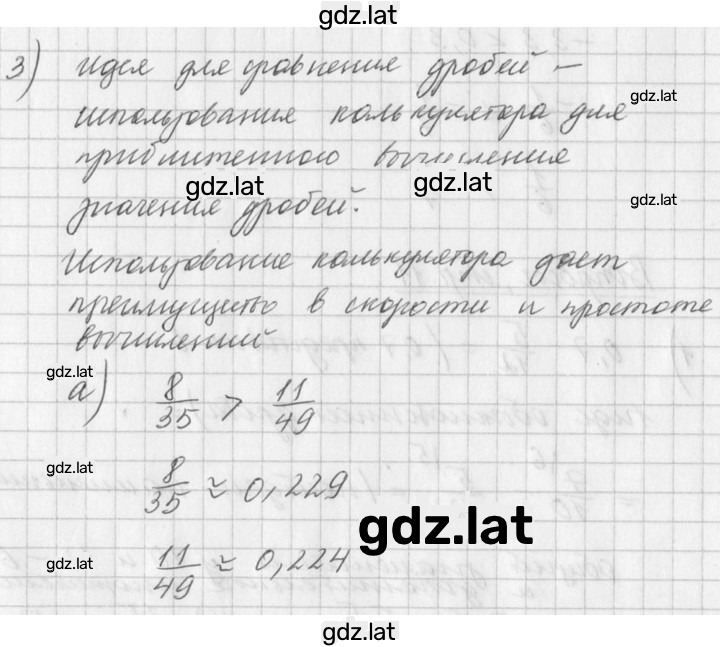 gdz.lat
3) идея для сравнения дробей –
gdz.lat
использования калькулятора для
приближенного вычисления
gdz.lat gdz.lat gdz.lat
значения дробей.
Использование калькулятора дает
преимущество в скорости и простоте
вычислений
gdz.lat
а) 8/35 > 11/49
gdz.lat
8/35 ≈ 0,229
gdz.lat
gdz.lat
11/49 ≈ 0,224
gdz.lat
gdz.lat